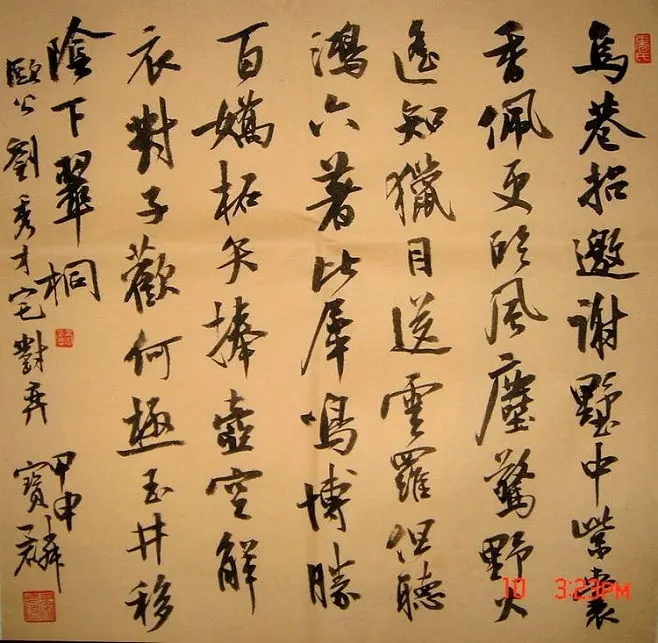 烏巷招邀謝墅中紫囊
香佩更臨風塵驚野火
遥知獵目送雲羅但聽
鴻六著比犀鳴博勝
百嬌柘矢捧壺空解
衣對子歡何極玉井移
陰下翠桐
歐公劉秀才宅對弈
甲申
寶麟
10 3:23PM